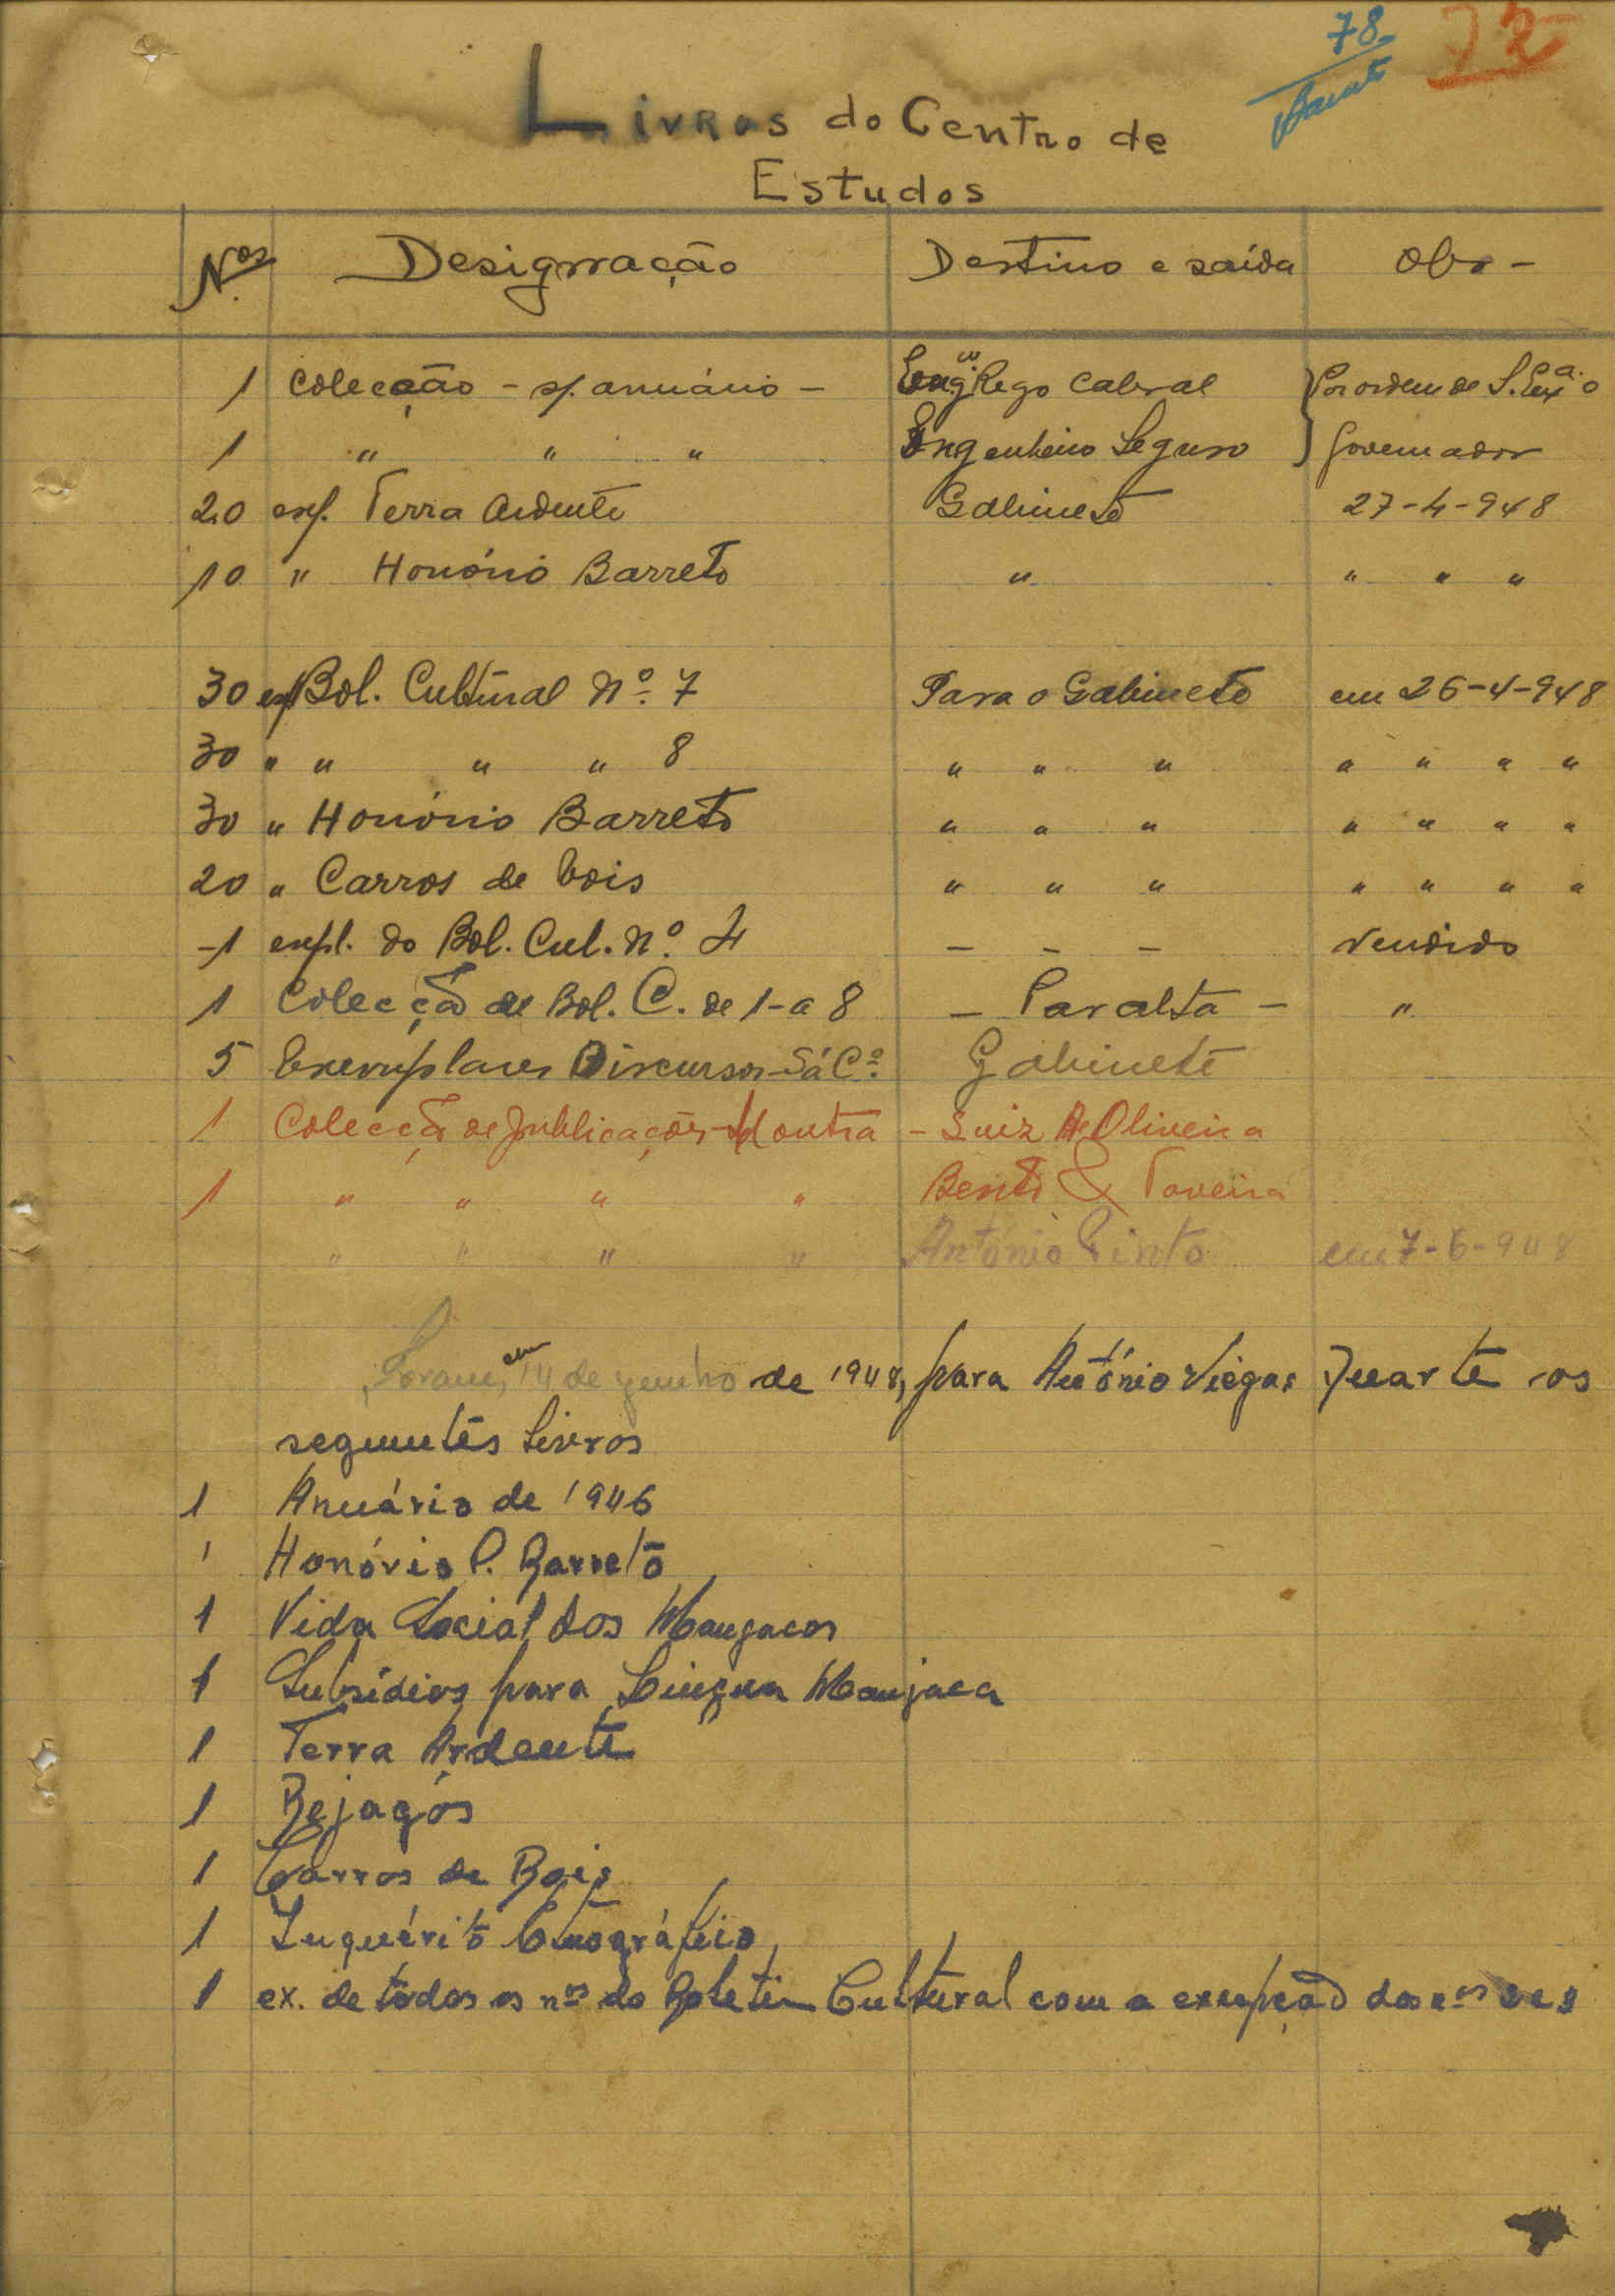 78
72
Livros do Centro de
Estudos
Nos. Designação Destino e saída Obs -
1 Colecção - s/. anuário - Engº Rego Cabral Por ordem de S. Exa. o
1 " " " Engenheiro Seguro Governador
20 exp. Terra Ardente Gabinete 27-4-948
10 " Honório Barreto " " " "
30 exp Bol. Cultural Nº 7 Para o Gabinete em 26-4-948
30 " " " " 8 " " " " " " "
30 " Honório Barreto " " " " " " "
20 " Carros de bois " " " " " " "
-1 expl. do Bol. Cul. Nº. 4 - - - Vendido
1 Colecção de Bol. C. de 1-a 8 - Paralta - "
5 Exemplares Discursos Sá Cº Gabinete
1 Colecção de publicações outra - Luiz A. Oliveira
1 " " " " Bento & Taveira
" " " " António Pinto em 7-6-948
Foram, em 14 de junho de 1948, para António Viegas Duarte os
seguintes Livros
1 Anuário de 1946
1 Honório P. Barreto
1 Vida Social dos Manjacos
1 Subsídios para Língua Manjaca
1 Terra Ardente
1 Bejagós
1 Carros de Bois
1 Inquérito Etnográfico
1 ex. de todos os nos do Boletim Cultural com a excepção dos nos